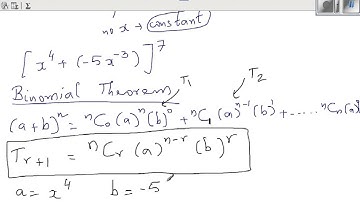 no x → constant
[x⁴ + (-5x⁻³)]⁷
Binomial Theorem T₁ T₂
(a+b)ⁿ = ⁿC₀(a)ⁿ(b)⁰ + ⁿC₁(a)ⁿ⁻¹(b)¹ + ...... ⁿCₙ(a)⁰
Tᵣ₊₁ = ⁿCᵣ (a)ⁿ⁻ʳ (b)ʳ
a = x⁴ b = -5